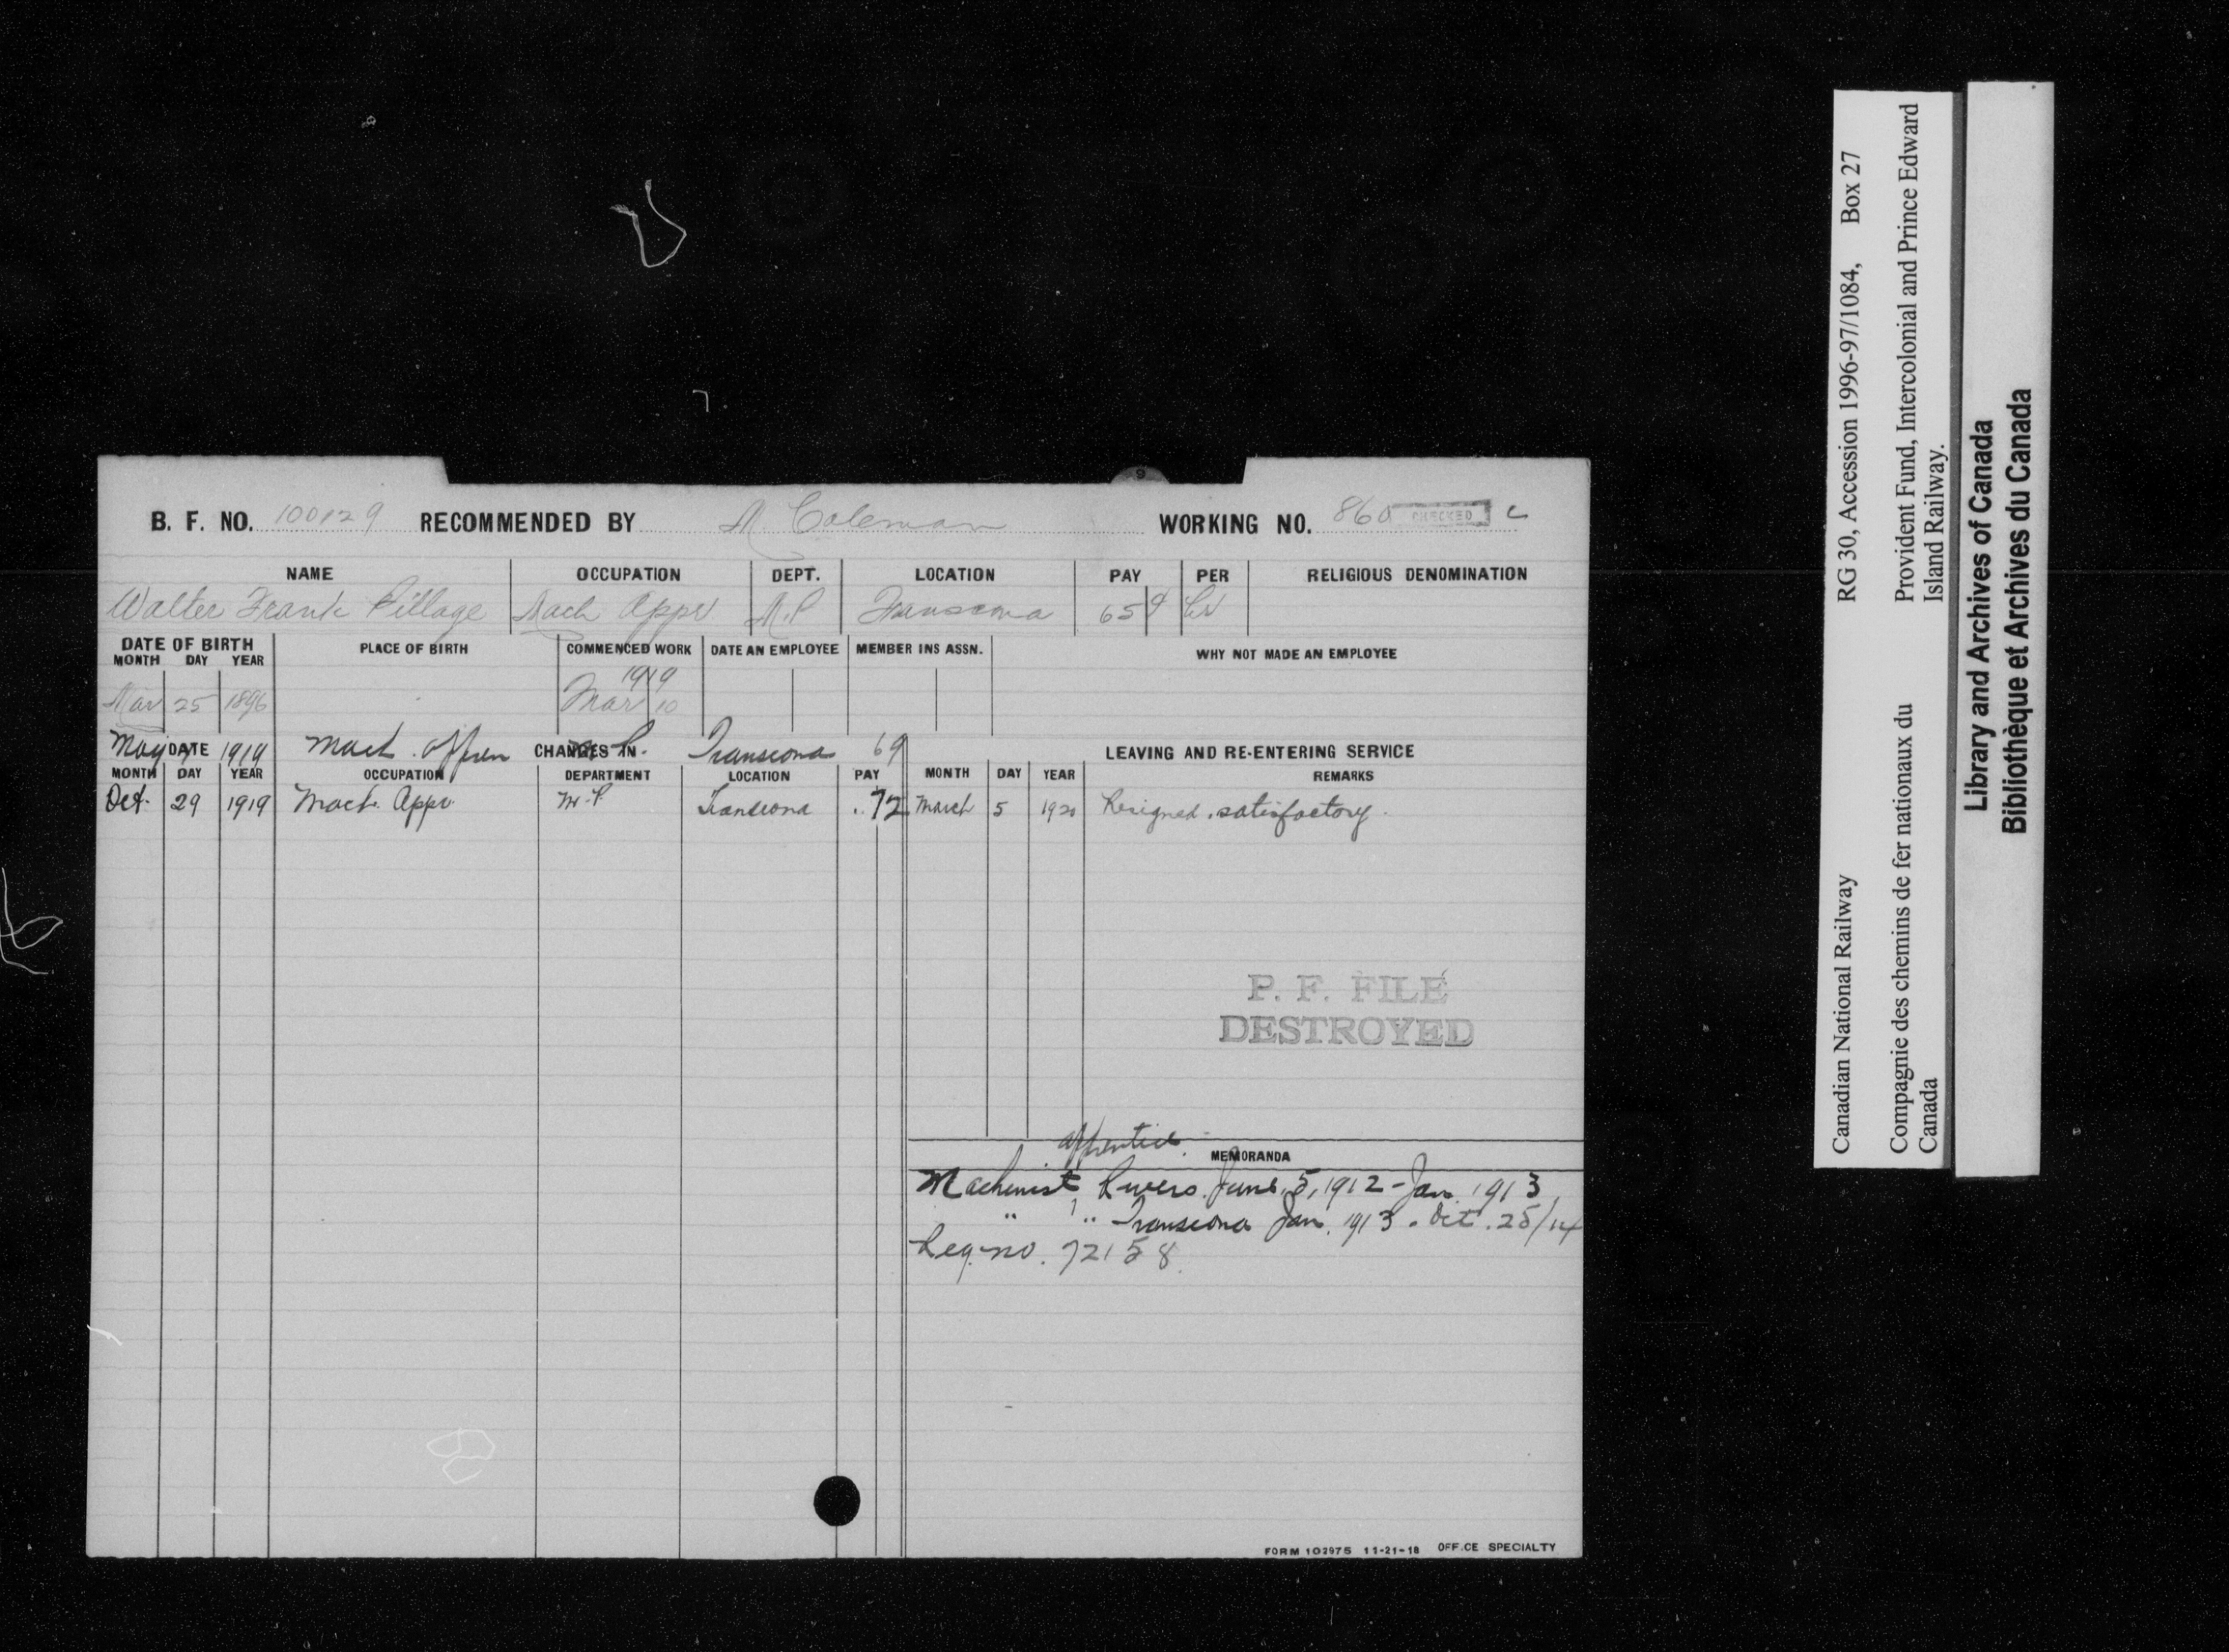 B. F. NO. 100129 RECOMMENDED BY Coleman WORKING NO. 860 CHECKED C
NAME OCCUPATION DEPT. LOCATION PAY PER RELIGIOUS DENOMINATION
Walter Frank Pillage Mach Appr M.P Transcona 65¢ hr
DATE OF BIRTH PLACE OF BIRTH COMMENCED WORK DATE AN EMPLOYEE MEMBER INS ASSN. WHY NOT MADE AN EMPLOYEE
MONTH DAY YEAR
Mar 25 1896 1919 Mar 10
May 1919 Mach. appren Transcona 69
DATE CHANGES IN LEAVING AND RE-ENTERING SERVICE
MONTH DAY YEAR OCCUPATION DEPARTMENT LOCATION PAY MONTH DAY YEAR REMARKS
Oct. 29 1919 Mach. Appr. M.P. Transcona .72 March 5 1920 Resigned. satisfactory.
P. F. FILE
DESTROYED
apprentice.
MEMORANDA
Machinist Rivers. June. 5, 1912 - Jan. 1913
" " Transcona Jan. 1913 - Oct. 25/14
Reg. no. 72158
FORM 102975 11-21-18 OFFICE SPECIALTY
Canadian National Railway RG 30, Accession 1996-97/1084, Box 27
Compagnie des chemins de fer nationaux du Provident Fund, Intercolonial and Prince Edward
Canada Island Railway.
Library and Archives of Canada
Bibliothèque et Archives du Canada